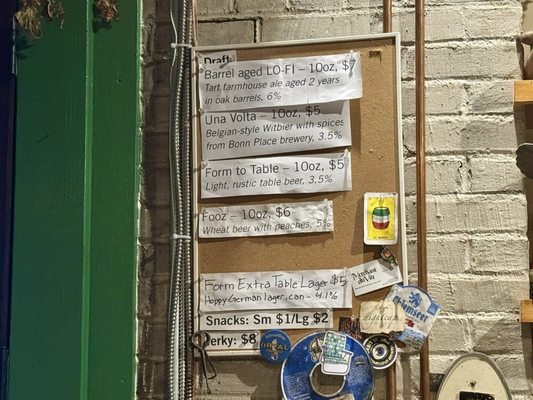 Draft
Barrel aged LO-FI – 10oz, $7
Tart farmhouse ale aged 2 years
in oak barrels, 6%
Una Volta – 10oz, $5
Belgian-style Witbier with spices
from Bonn Place brewery, 3.5%
Form to Table – 10oz, $5
Light, rustic table beer, 3.5%
Fooz – 10oz, $6
Wheat beer with peaches, 5%
Form Extra Table Lager $5
Hoppy German lager, can - 4.1%
Snacks: Sm $1/Lg $2
Jerky: $8
nightcap